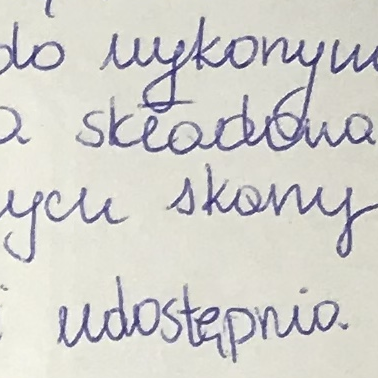 do wykonyw
a składowa
ych skany
i udostępnia.